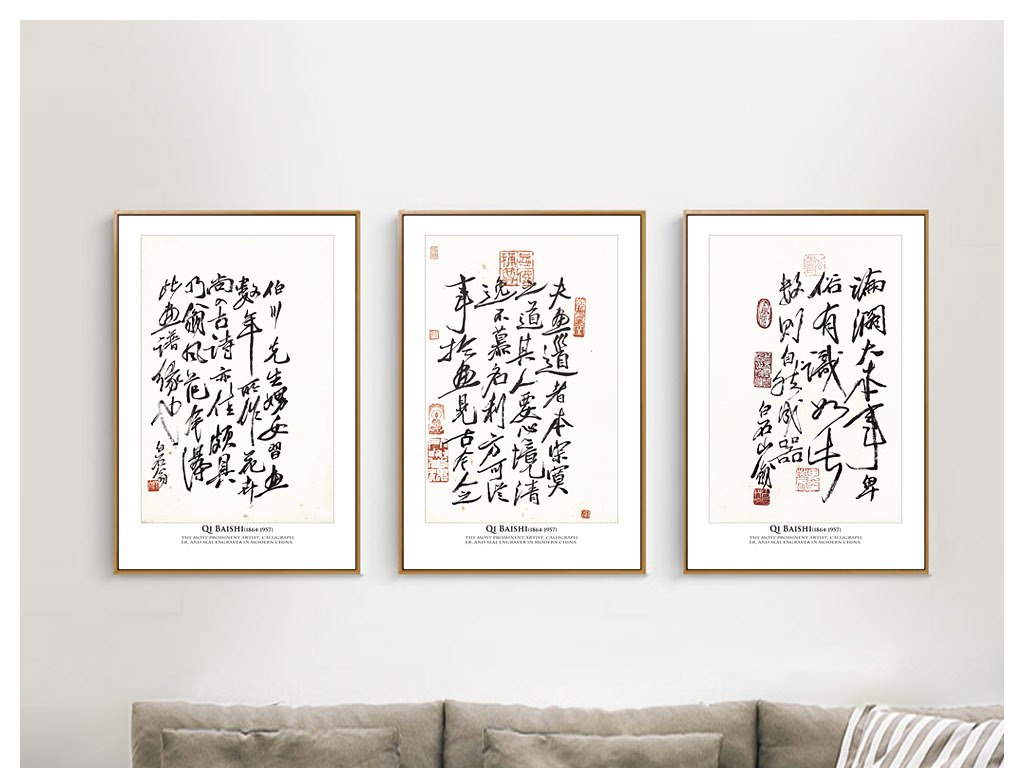 伯川先生女習畫
數年所作花卉
尚古詩亦佳頗具
乃翁風范
此畫譜緣也
白石翁
QI BAISHI(1864-1957)
THE MOST PROMINENT ARTIST, CALLIGRAPH
ER, AND SEAL ENGRAVER IN MODERN CHINA
夫畫道者本寂寞
之道其人要心境清
逸不慕名利方可從
事於畫見古今之
QI BAISHI(1864-1957)
THE MOST PROMINENT ARTIST, CALLIGRAPH
ER, AND SEAL ENGRAVER IN MODERN CHINA
大本事卑
俗有識如
數則自然成器
白石山翁
QI BAISHI(1864-1957)
THE MOST PROMINENT ARTIST, CALLIGRAPH
ER, AND SEAL ENGRAVER IN MODERN CHINA